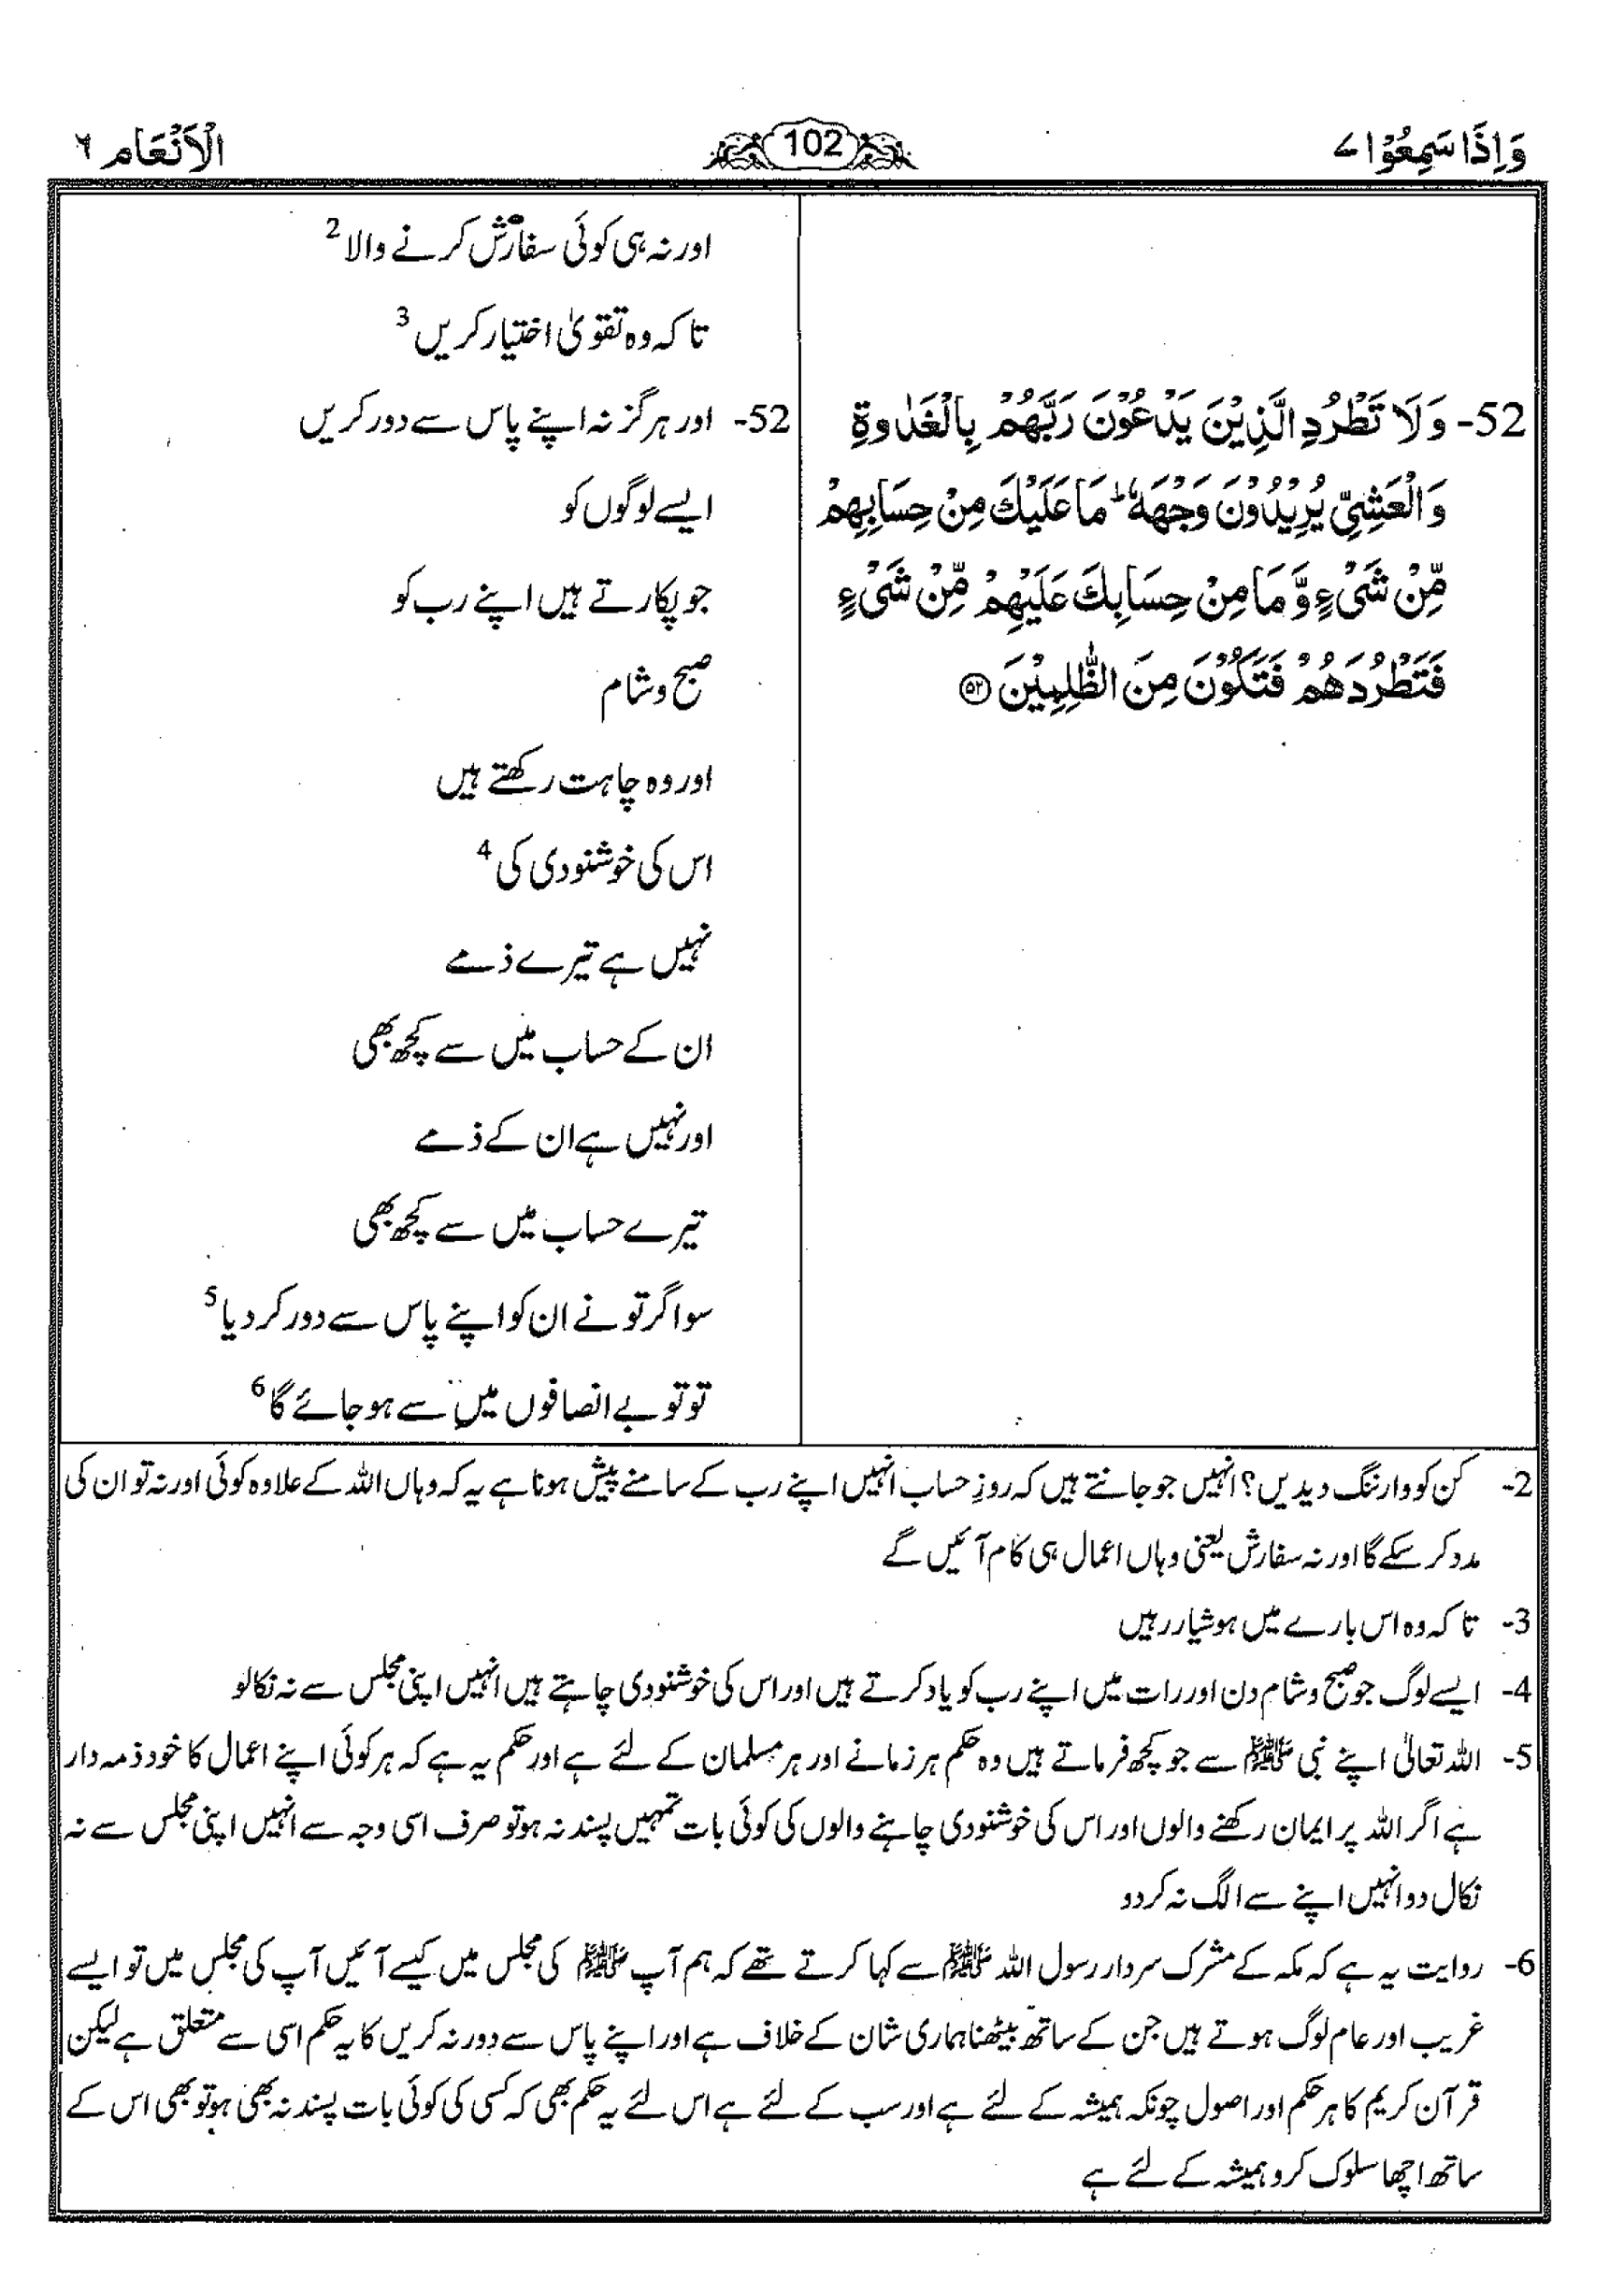 وَاِذَا سَمِعُوْا ۷
102
الْاَنْعَام ٦
52- وَلَا تَطْرُدِ الَّذِيْنَ يَدْعُوْنَ رَبَّهُمْ بِالْغَدٰوةِ
وَالْعَشِيِّ يُرِيْدُوْنَ وَجْهَهٗ ؕ مَا عَلَيْكَ مِنْ حِسَابِهِمْ
مِّنْ شَيْءٍ وَّمَا مِنْ حِسَابِكَ عَلَيْهِمْ مِّنْ شَيْءٍ
فَتَطْرُدَهُمْ فَتَكُوْنَ مِنَ الظّٰلِمِيْنَ ۝۵۲
اور نہ ہی کوئی سفارش کرنے والا 2
تاکہ وہ تقویٰ اختیار کریں 3
52- اور ہرگز نہ اپنے پاس سے دور کریں
ایسے لوگوں کو
جو پکارتے ہیں اپنے رب کو
صبح و شام
اور وہ چاہت رکھتے ہیں
اس کی خوشنودی کی 4
نہیں ہے تیرے ذمے
ان کے حساب میں سے کچھ بھی
اور نہیں ہے ان کے ذمے
تیرے حساب میں سے کچھ بھی
سو اگر تو نے ان کو اپنے پاس سے دور کر دیا 5
تو تو بے انصافوں میں سے ہو جائے گا 6
2- کن کو وارننگ دیدیں؟ انہیں جو جانتے ہیں کہ روزِ حساب انہیں اپنے رب کے سامنے پیش ہونا ہے یہ کہ وہاں اللہ کے علاوہ کوئی اور نہ تو ان کی
مدد کر سکے گا اور نہ سفارش یعنی وہاں اعمال ہی کام آئیں گے
3- تاکہ وہ اس بارے میں ہوشیار رہیں
4- ایسے لوگ جو صبح و شام دن اور رات میں اپنے رب کو یاد کرتے ہیں اور اس کی خوشنودی چاہتے ہیں انہیں اپنی مجلس سے نہ نکالو
5- اللہ تعالیٰ اپنے نبی ﷺ سے جو کچھ فرماتے ہیں وہ حکم ہر زمانے اور ہر مسلمان کے لئے ہے اور حکم یہ ہے کہ ہر کوئی اپنے اعمال کا خود ذمہ دار
ہے اگر اللہ پر ایمان رکھنے والوں اور اس کی خوشنودی چاہنے والوں کی کوئی بات تمہیں پسند نہ ہو تو صرف اسی وجہ سے انہیں اپنی مجلس سے نہ
نکال دو انہیں اپنے سے الگ نہ کر دو
6- روایت یہ ہے کہ مکہ کے مشرک سردار رسول اللہ ﷺ سے کہا کرتے تھے کہ ہم آپ ﷺ کی مجلس میں کیسے آئیں آپ کی مجلس میں تو ایسے
غریب اور عام لوگ ہوتے ہیں جن کے ساتھ بیٹھنا ہماری شان کے خلاف ہے اور اپنے پاس سے دور نہ کریں کا یہ حکم اسی سے متعلق ہے لیکن
قرآن کریم کا ہر حکم اور اصول چونکہ ہمیشہ کے لئے ہے اور سب کے لئے ہے اس لئے یہ حکم بھی کہ کسی کی کوئی بات پسند نہ بھی ہو تو بھی اس کے
ساتھ اچھا سلوک کرو ہمیشہ کے لئے ہے